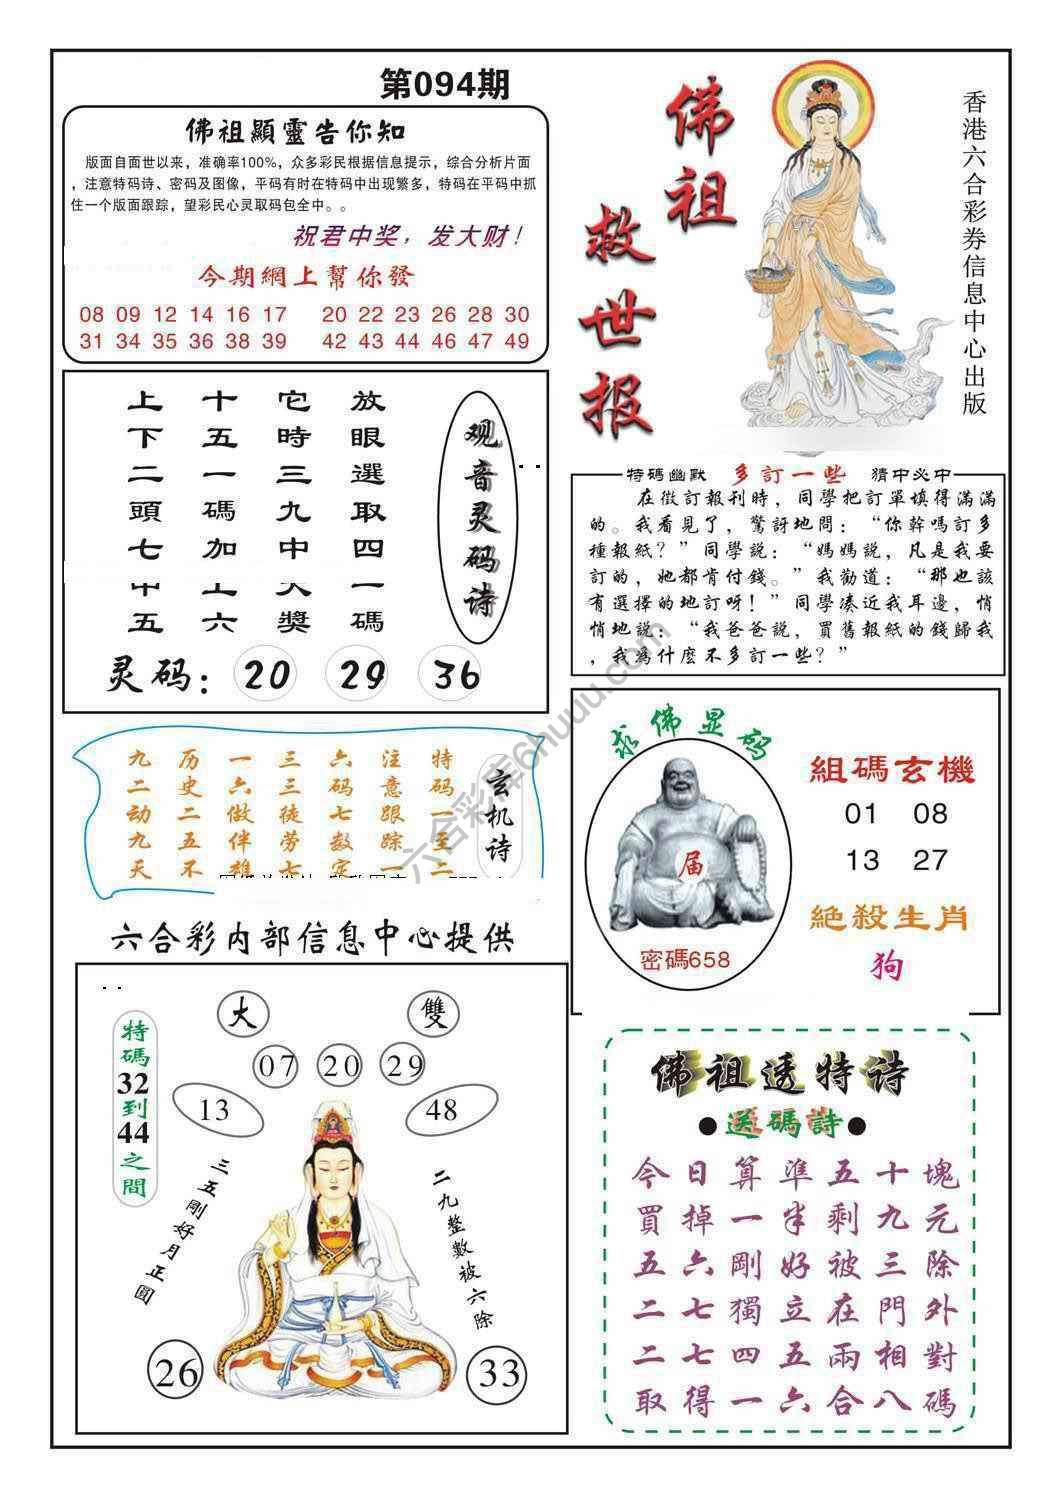 第094期
佛祖顯靈告你知
版面自面世以来，准确率100%，众多彩民根据信息提示，综合分析片面
，注意特码诗、密码及图像，平码有时在特码中出现繁多，特码在平码中抓
住一个版面跟踪，望彩民心灵取码包全中。。
祝君中奖，发大财！
今期網上幫你發
08 09 12 14 16 17 20 22 23 26 28 30
31 34 35 36 38 39 42 43 44 46 47 49
佛祖
救世报
香港六合彩券信息中心出版
放眼選取四一碼
它時三九中大獎
十五一碼加上六
上下二頭七中五
观音灵码诗
灵码：20 29 36
特碼幽默 多訂一些 猜中必中
在徵訂報刊時，同學把訂單填得滿滿
的。我看見了，驚訝地問：“你幹嗎訂多
種報紙？”同學説：“媽媽説，凡是我要
訂的，她都肯付錢。”我勸道：“那也該
有選擇的地訂呀！”同學凑近我耳邊，悄
悄地説：“我爸爸説，買舊報紙的錢歸我
，我為什麽不多訂一些？”
玄机诗
特码一至二
注意跟踪一
六码七数定
三三徒劳七
一六做伴雄
历史二五不
九二动九天
求佛显码
届
密碼658
組碼玄機
01 08
13 27
絶殺生肖
狗
六合彩内部信息中心提供
特碼32到44之間
大
雙
07 20 29
13 48
三五剛好月正圓
二九整數被六除
26 33
佛祖透特诗
●送碼詩●
今日算準五十塊
買掉一半剩九元
五六剛好被三除
二七獨立在門外
二七四五兩相對
取得一六合八碼
六合彩库6huuu.com